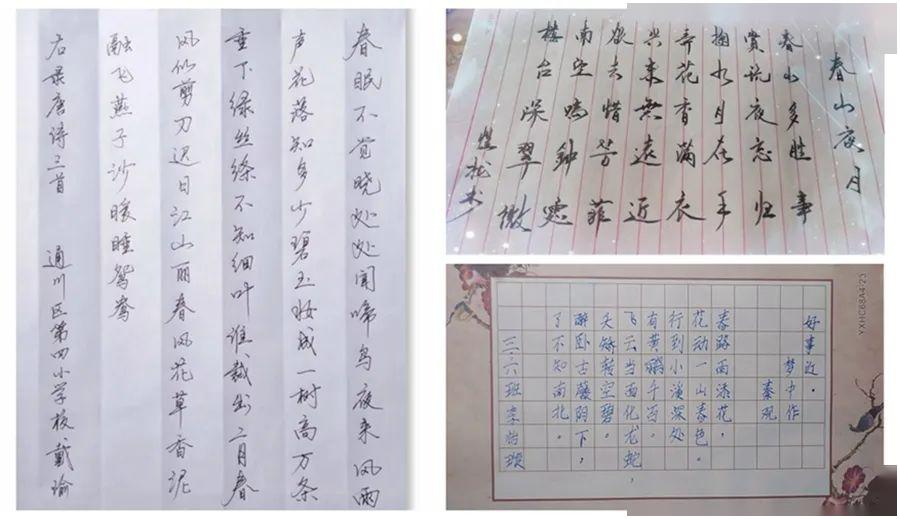 春眠不觉晓处处闻啼鸟夜来风雨
声花落知多少碧玉妆成一树高万条
垂下绿丝绦不知细叶谁裁出二月春
风似剪刀迟日江山丽春风花草香泥
融飞燕子沙暖睡鸳鸯
右录唐诗三首 通川区第四小学校戴瑜
春山夜月
春山多胜事
赏玩夜忘归
掬水月在手
弄花香满衣
兴来無远近
欲去惜芳菲
南望鸣钟处
楼台深翠微
好事近·
梦中作
秦观
春路雨添花，
花动一山春色。
行到小溪深处
有黄鹂千百。
飞云当面化龙蛇，
夭矫转空碧。
醉卧古藤阴下，
了不知南北。
三.六班李怡璇
YXHC68A4-23